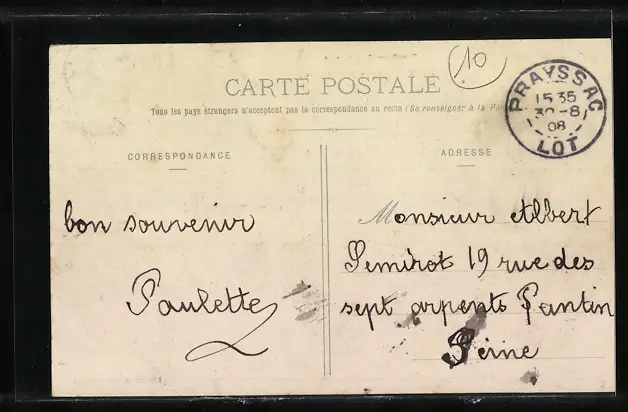 10
CARTE POSTALE
Tous les pays étrangers n'acceptent pas la correspondance au recto (Se renseigner à la Pos
PRAYSSAC
15 35
30-8
08
LOT
CORRESPONDANCE
ADRESSE
bon souvenir
Paulette
Monsieur Albert
Semirot 19 rue des
sept arpents Pantin
Seine